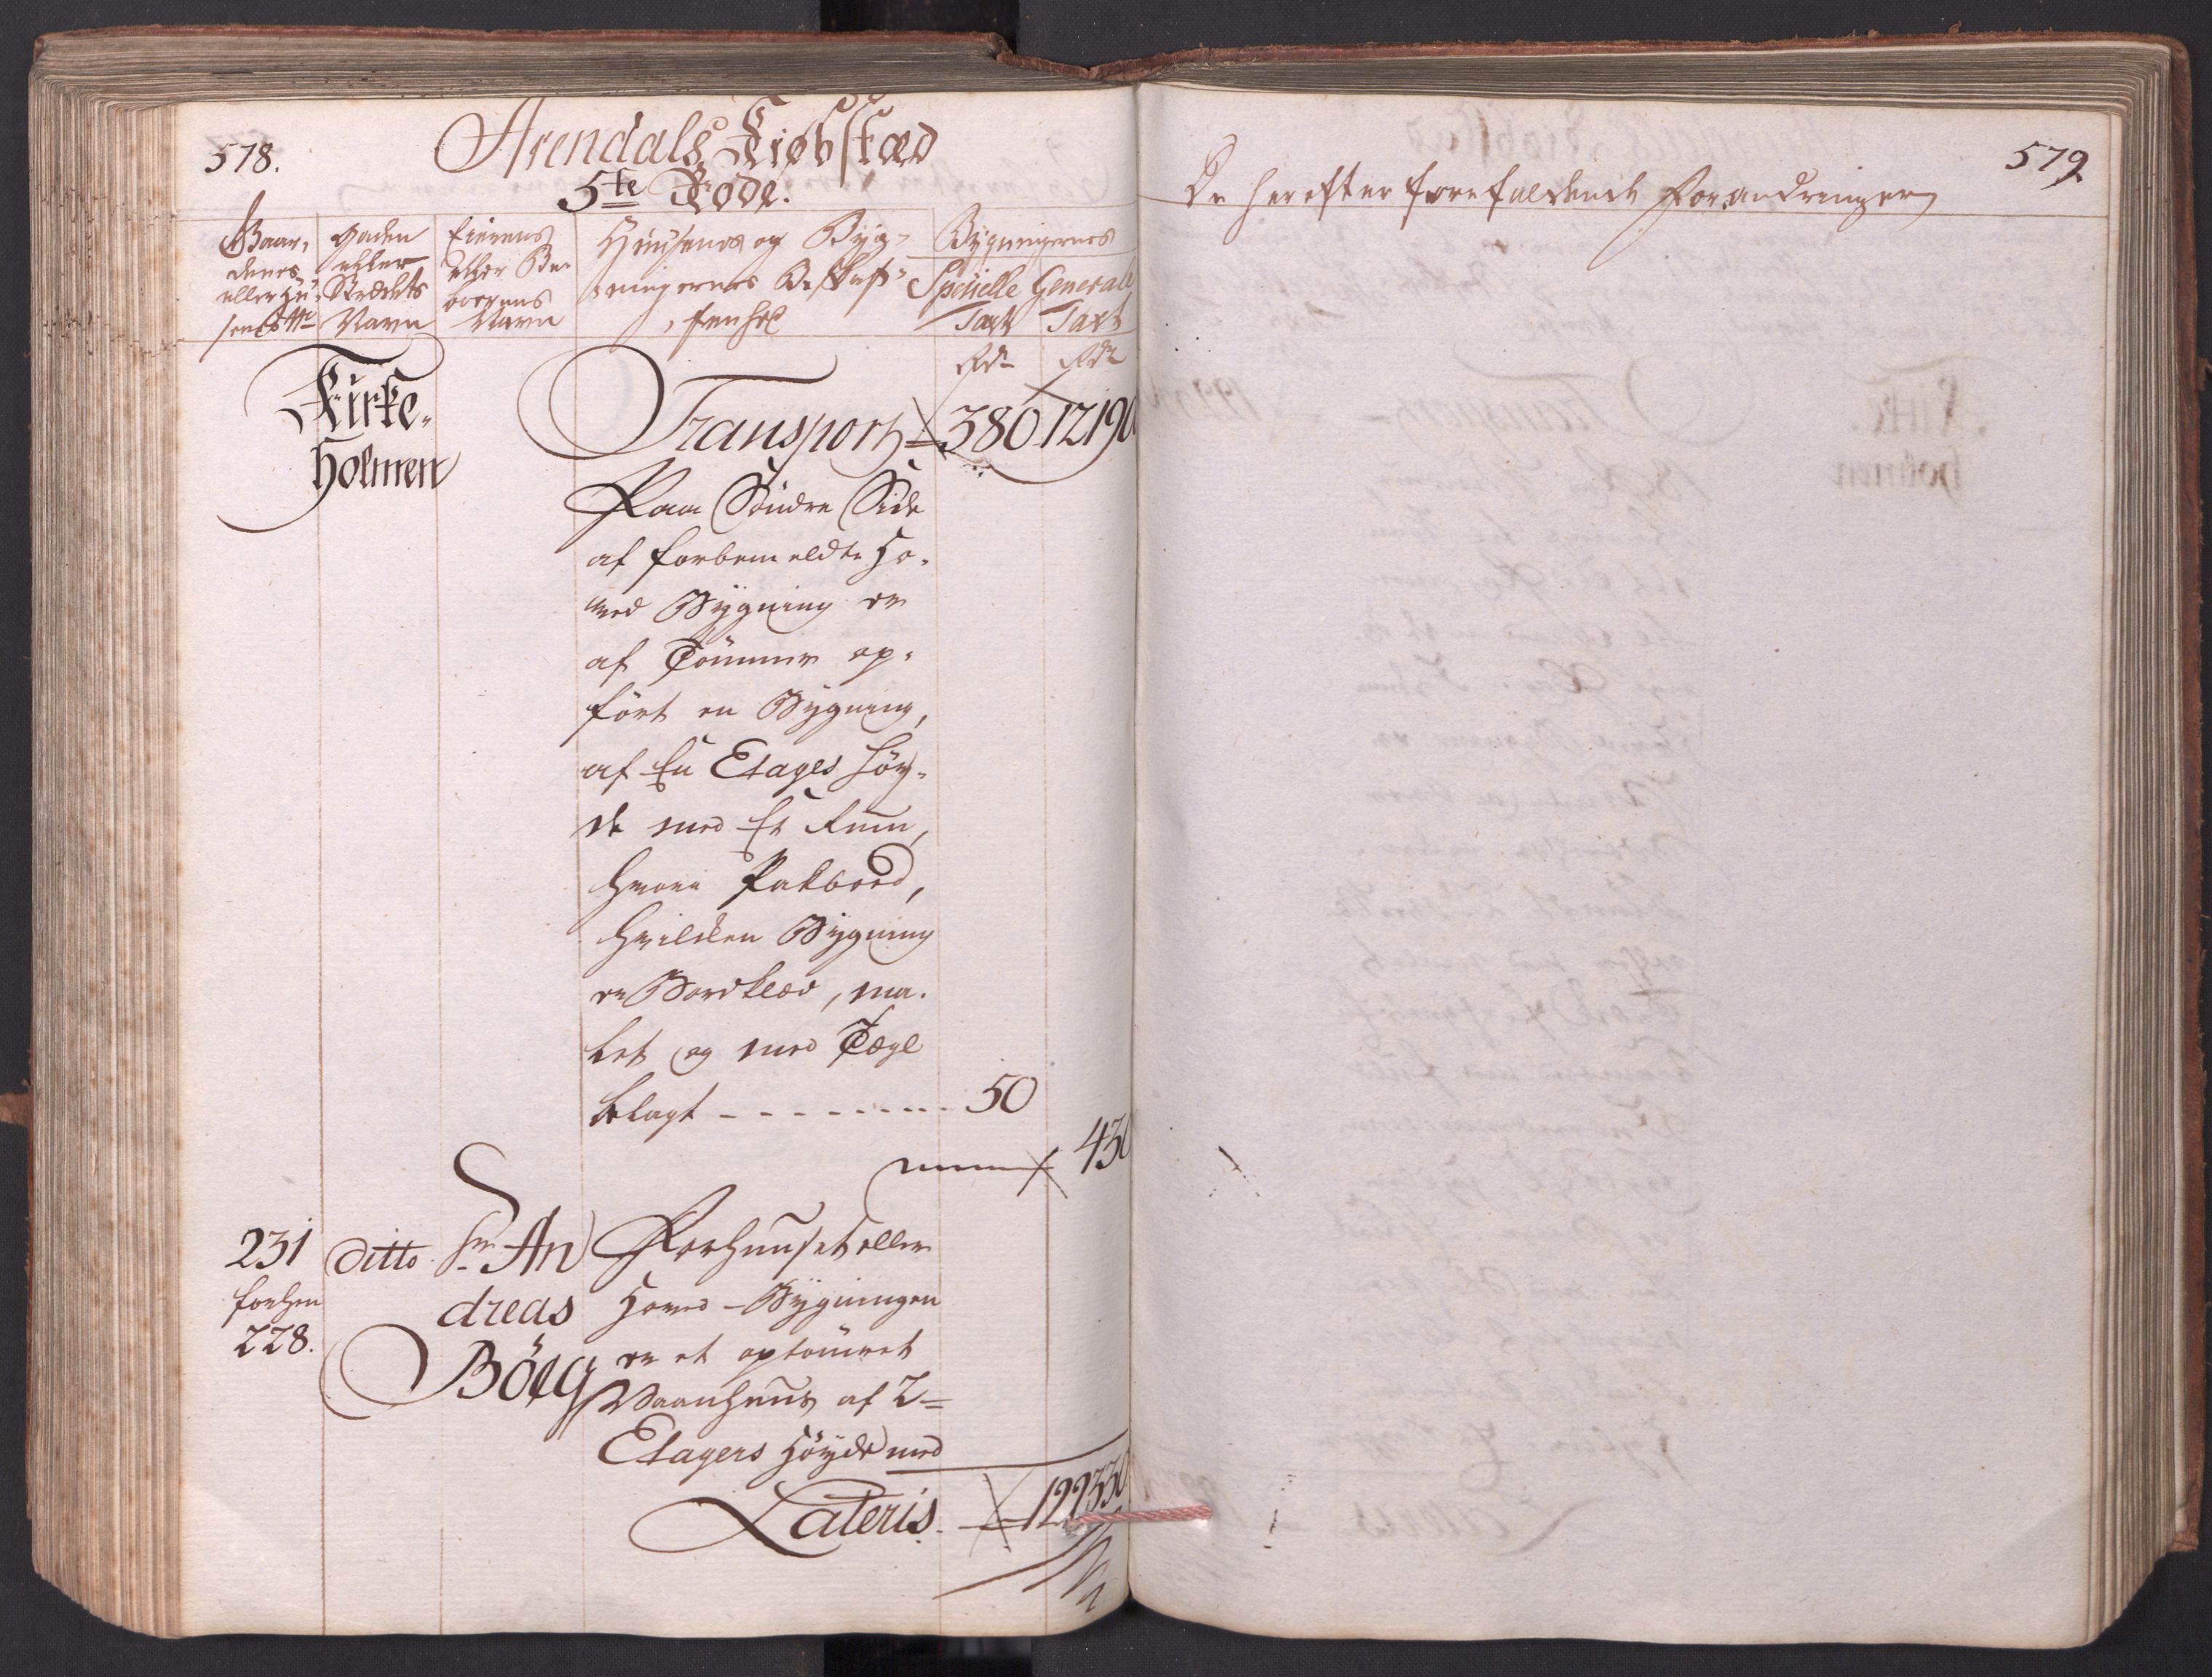 578.
Arendals Kiøbstæd
5te Rode.
Gaar-
denes
eller Hu-
senes No
Gaden
eller
Strædets
Navn
Eierens
eller Be-
boerens
Navn
Huusenes og Byg-
ningernes Beskaf-
fenhed
Bygningernes
Spesielle Generale
Taxt Taxt
Rdr Rdr
Kirke-
holmen
Transport 380 12190
Paa Søndre Side
af forbemeldte Ho-
ved Bygning er
af Tømmer op-
ført en Bygning,
af En Etages Høy-
de med Et Rum,
hvori Pakboed,
hvilcken Bygning
er Bordklæd, ma-
let og med Tegl
belagt - - - - - - - - 50
430
231
forhen
228.
ditto
Sr An
dreas
Böeg
Forhuuset eller
Hoved-Bygningen
er et optømret
Vaanhuus af 2
Etagers Høyde med
Lateris. 122330
579
De herefter forefaldende Forandringer